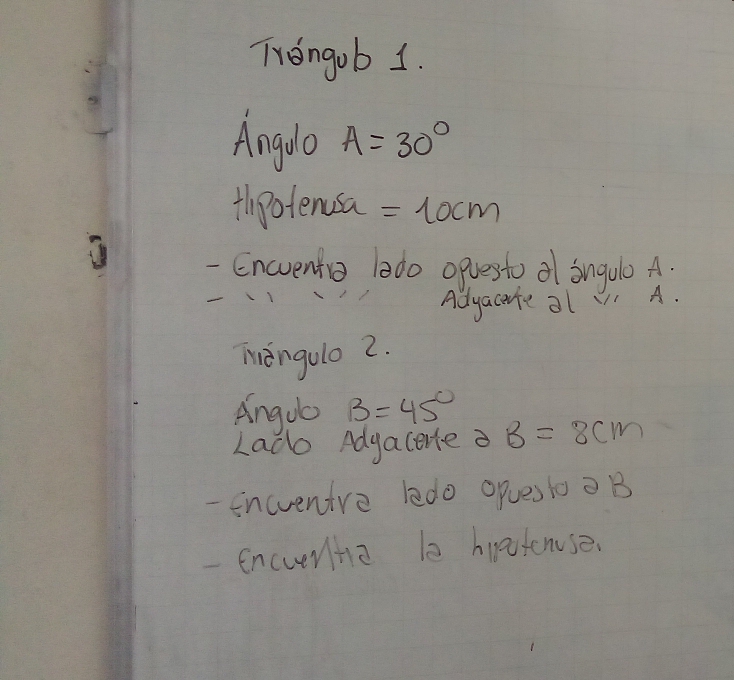 Triángulo 1.
Ángulo A = 30°
Hipotenusa = 10cm
- Encuentra lado opuesto al ángulo A.
- " " Adyacente al " A.
Triángulo 2.
Ángulo B = 45°
Lado Adyacente a B = 8cm
- Encuentra lado opuesto a B
- Encuentra la hipotenusa.